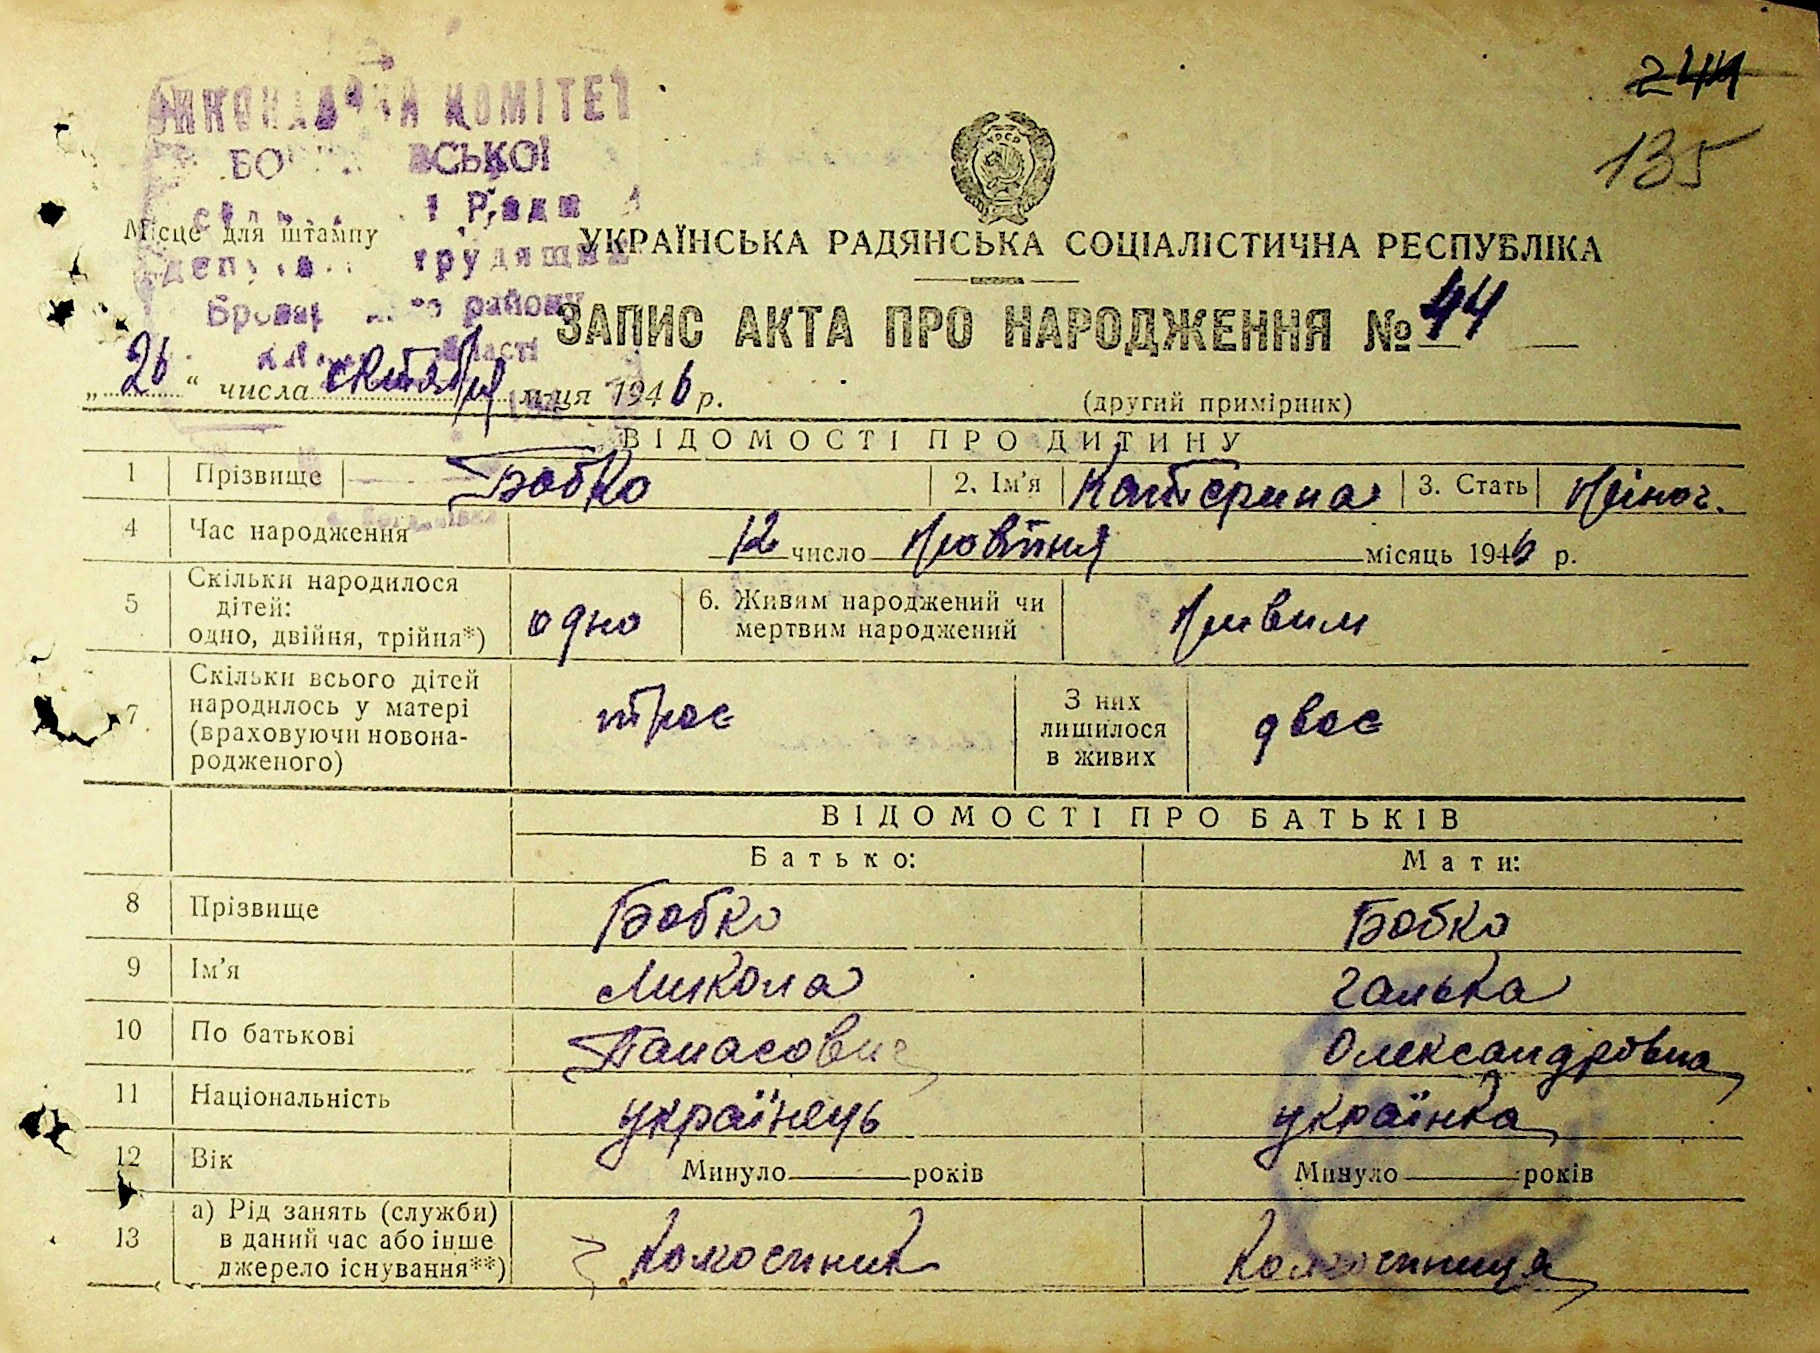 244
135
КОМІТЕТ
ВСЬКОЇ
Місце для штампу
трудящих
району
УКРАЇНСЬКА РАДЯНСЬКА СОЦІАЛІСТИЧНА РЕСПУБЛІКА
ЗАПИС АКТА ПРО НАРОДЖЕННЯ № 44
„ 26 “ числа октября м-ця 1946 р.
(другий примірник)
ВІДОМОСТІ ПРО ДИТИНУ
1 Прізвище Бобко 2. Ім'я Катерина 3. Стать жіноч.
4 Час народження 12 число жовтня місяць 1946 р.
5 Скільки народилося дітей: одно, двійня, трійня*) одно 6. Живим народжений чи мертвим народжений живим
7 Скільки всього дітей народилось у матері (враховуючи новонародженого) троє З них лишилося в живих двоє
ВІДОМОСТІ ПРО БАТЬКІВ
Батько: Мати:
8 Прізвище Бобко Бобко
9 Ім'я Микола Галька
10 По батькові Панасович Олександрівна
11 Національність українець українка
12 Вік Минуло років Минуло років
13 а) Рід занять (служби) в даний час або інше джерело існування**) Колгоспник Колгоспниця